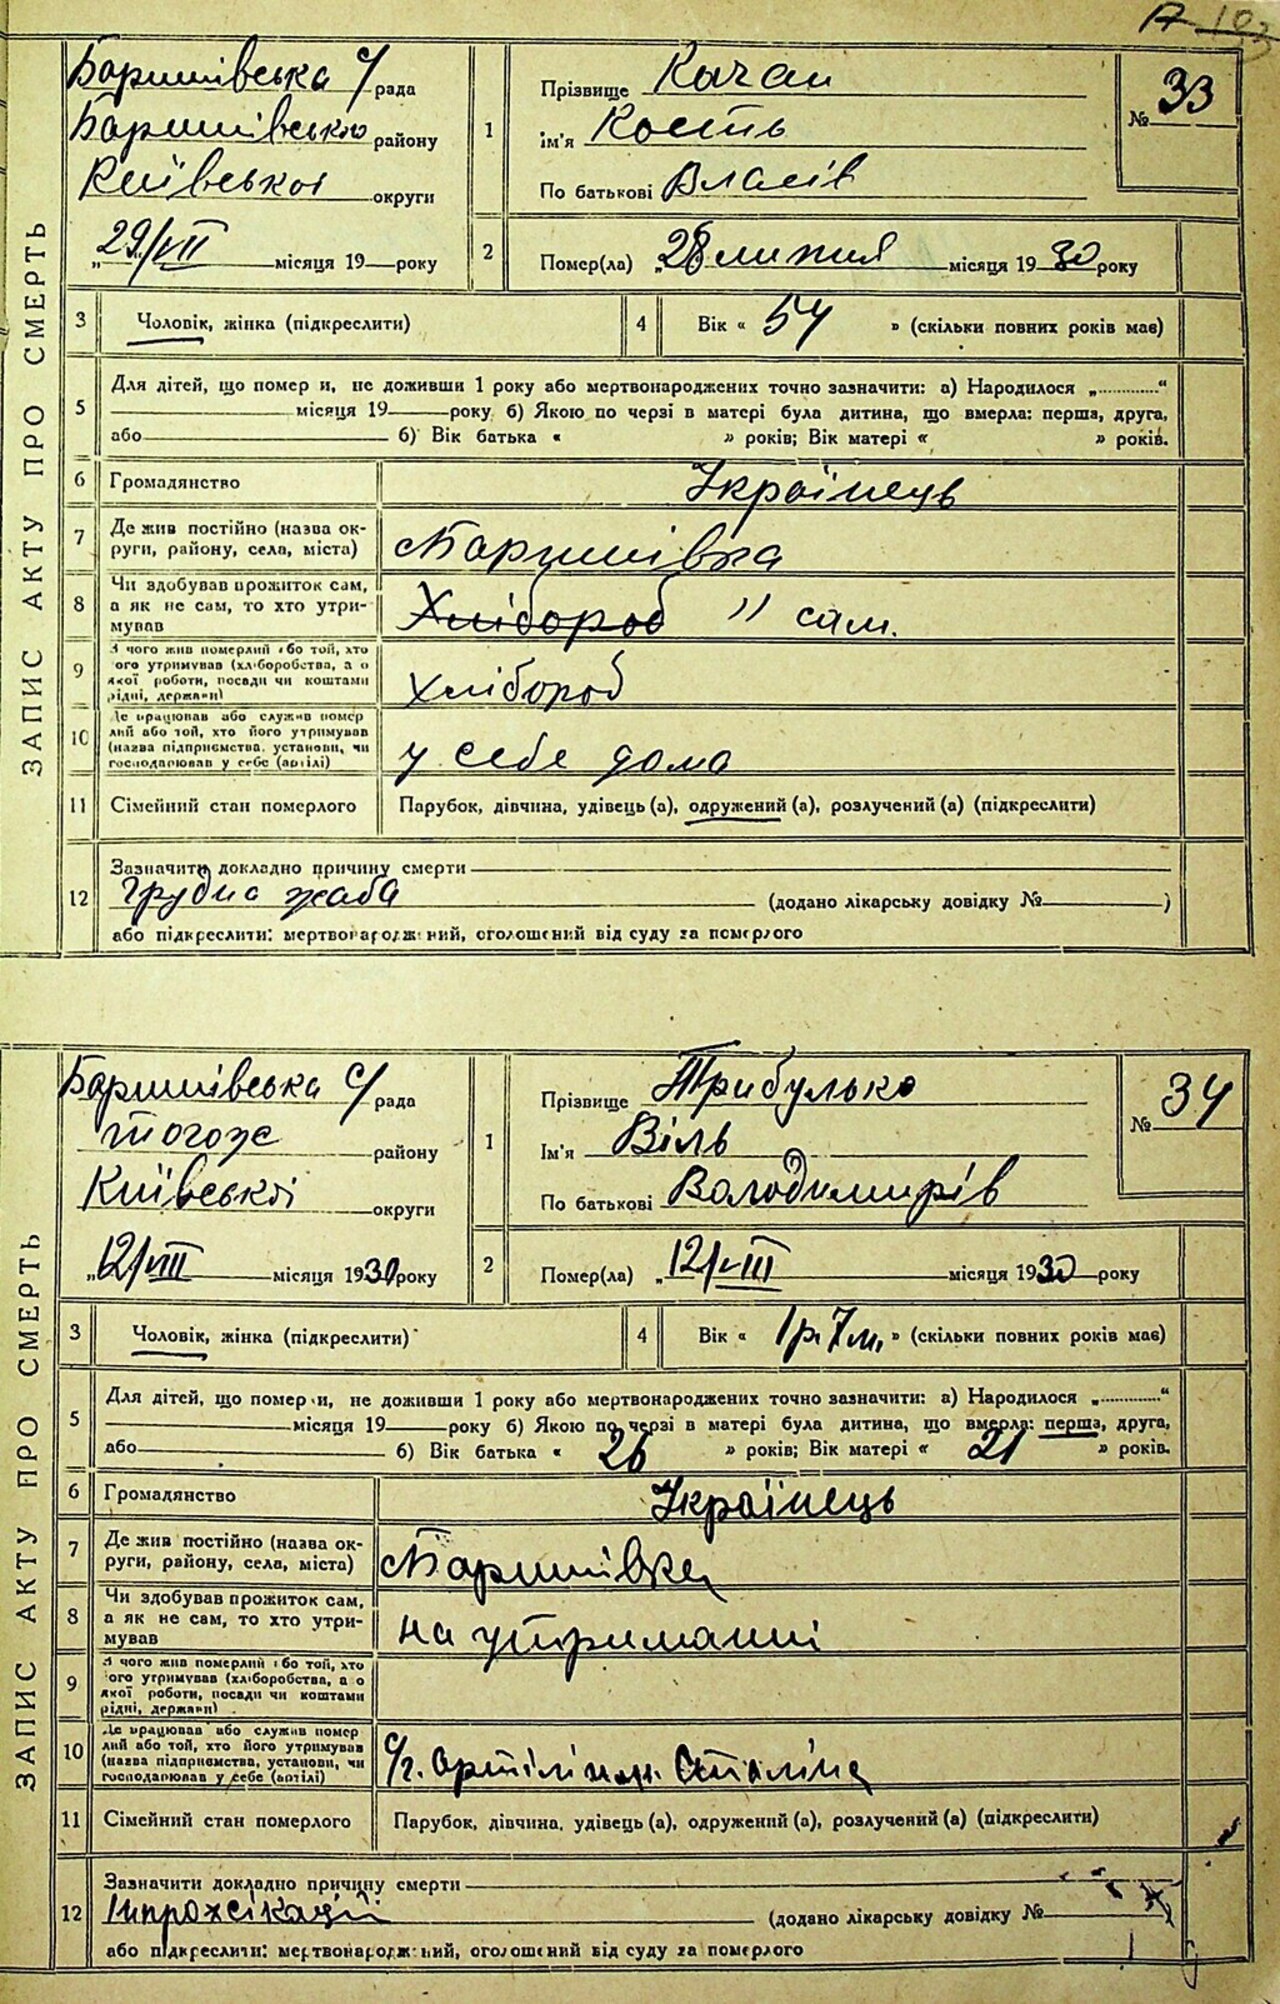 А 103
ЗАПИС АКТУ ПРО СМЕРТЬ
Баришівська с/рада
Баришівського району
Київської округи
„29/VII місяця 19 року
1
Прізвище Качан
ім'я Кость
По батькові Власів
№ 33
2
Помер(ла) „28 липня місяця 1930 року
3 Чоловік, жінка (підкреслити)
4 Вік « 54 » (скільки повних років має)
5 Для дітей, що помер и, не доживши 1 року або мертвонароджених точно зазначити: а) Народилося „............“
місяця 19 року б) Якою по черзі в матері була дитина, що вмерла: перша, друга,
або б) Вік батька « » років; Вік матері « » років.
6 Громадянство Українець
7 Де жив постійно (назва ок-
руги, району, села, міста) Баришівка
8 Чи здобував прожиток сам,
а як не сам, то хто утри-
мував Хлібороб " сам.
9 З чого жив померлий або той, хто
ого утримував (хліборобства, а о
якої роботи, посади чи коштами
рідні, держави) Хлібороб
10 Де працював або служив помер
лий або той, хто його утримував
(назва підприємства, установи, чи
господарював у себе (артілі) у себе дома
11 Сімейний стан померлого Парубок, дівчина, удівець (а), одружений (а), розлучений (а) (підкреслити)
12 Зазначити докладно причину смерти
Грудна жаба (додано лікарську довідку № )
або підкреслити: мертвонароджений, оголошений від суду за померлого
ЗАПИС АКТУ ПРО СМЕРТЬ
Баришівська с/рада
тогож району
Київської округи
„12/VIII місяця 1930 року
1
Прізвище Трибулько
Ім'я Віль
По батькові Володимирів
№ 34
2
Помер(ла) „12/VIII місяця 1930 року
3 Чоловік, жінка (підкреслити)
4 Вік « 1р. 7м. » (скільки повних років має)
5 Для дітей, що помер и, не доживши 1 року або мертвонароджених точно зазначити: а) Народилося „............“
місяця 19 року б) Якою по черзі в матері була дитина, що вмерла: перша, друга,
або б) Вік батька « 26 » років; Вік матері « 21 » років.
6 Громадянство Українець
7 Де жив постійно (назва ок-
руги, району, села, міста) Баришівка
8 Чи здобував прожиток сам,
а як не сам, то хто утри-
мував на утриманні
9 З чого жив померлий або той, хто
ого утримував (хліборобства, а о
якої роботи, посади чи коштами
рідні, держави)
10 Де працював або служив помер
лий або той, хто його утримував
(назва підприємства, установи, чи
господарював у себе (артілі) с/г. артілі ім. Сталіна
11 Сімейний стан померлого Парубок, дівчина, удівець (а), одружений (а), розлучений (а) (підкреслити)
12 Зазначити докладно причину смерти
(додано лікарську довідку №
або підкреслити: мертвонароджений, оголошений від суду за померлого